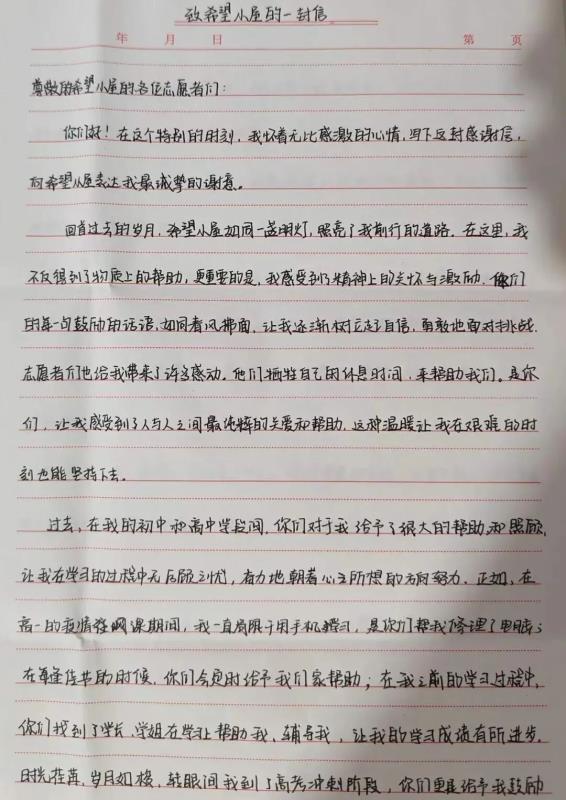 致希望小屋的一封信
年 月 日 第 页
尊敬的希望小屋的各位志愿者们:
你们好!在这个特别的时刻,我怀着无比感激的心情,写下这封感谢信,
向希望小屋表达我最诚挚的谢意。
回首过去的岁月,希望小屋如同一盏明灯,照亮了我前行的道路。在这里,我
不仅得到了物质上的帮助,更重要的是,我感受到了精神上的关怀与激励。你们
的每一句鼓励的话语,如同春风拂面,让我逐渐树立起了自信,勇敢地面对挑战.
志愿者们也给我带来了许多感动。他们牺牲自己的休息时间,来帮助我们。是你
们,让我感受到了人与人之间最纯粹的关爱和帮助,这种温暖让我在艰难的时
刻也能坚持下去.
过去,在我的初中和高中学段间,你们对于我给予了很大的帮助和照顾,
让我在学习的过程中无后顾之忧,奋力地朝着心之所想的方向努力。正如,在
高一的疫情在网课期间,我一直局限于用手机学习,是你们帮我修理了电脑;
在每逢佳节的时候,你们会更时给予我们家帮助;在我之前的学习过程中,
你们找到了学长、学姐在学习上帮助我、辅导我,让我的学习成绩有所进步.
时光荏苒,岁月如梭,转眼间我到了高考冲刺阶段,你们更是给予我鼓励